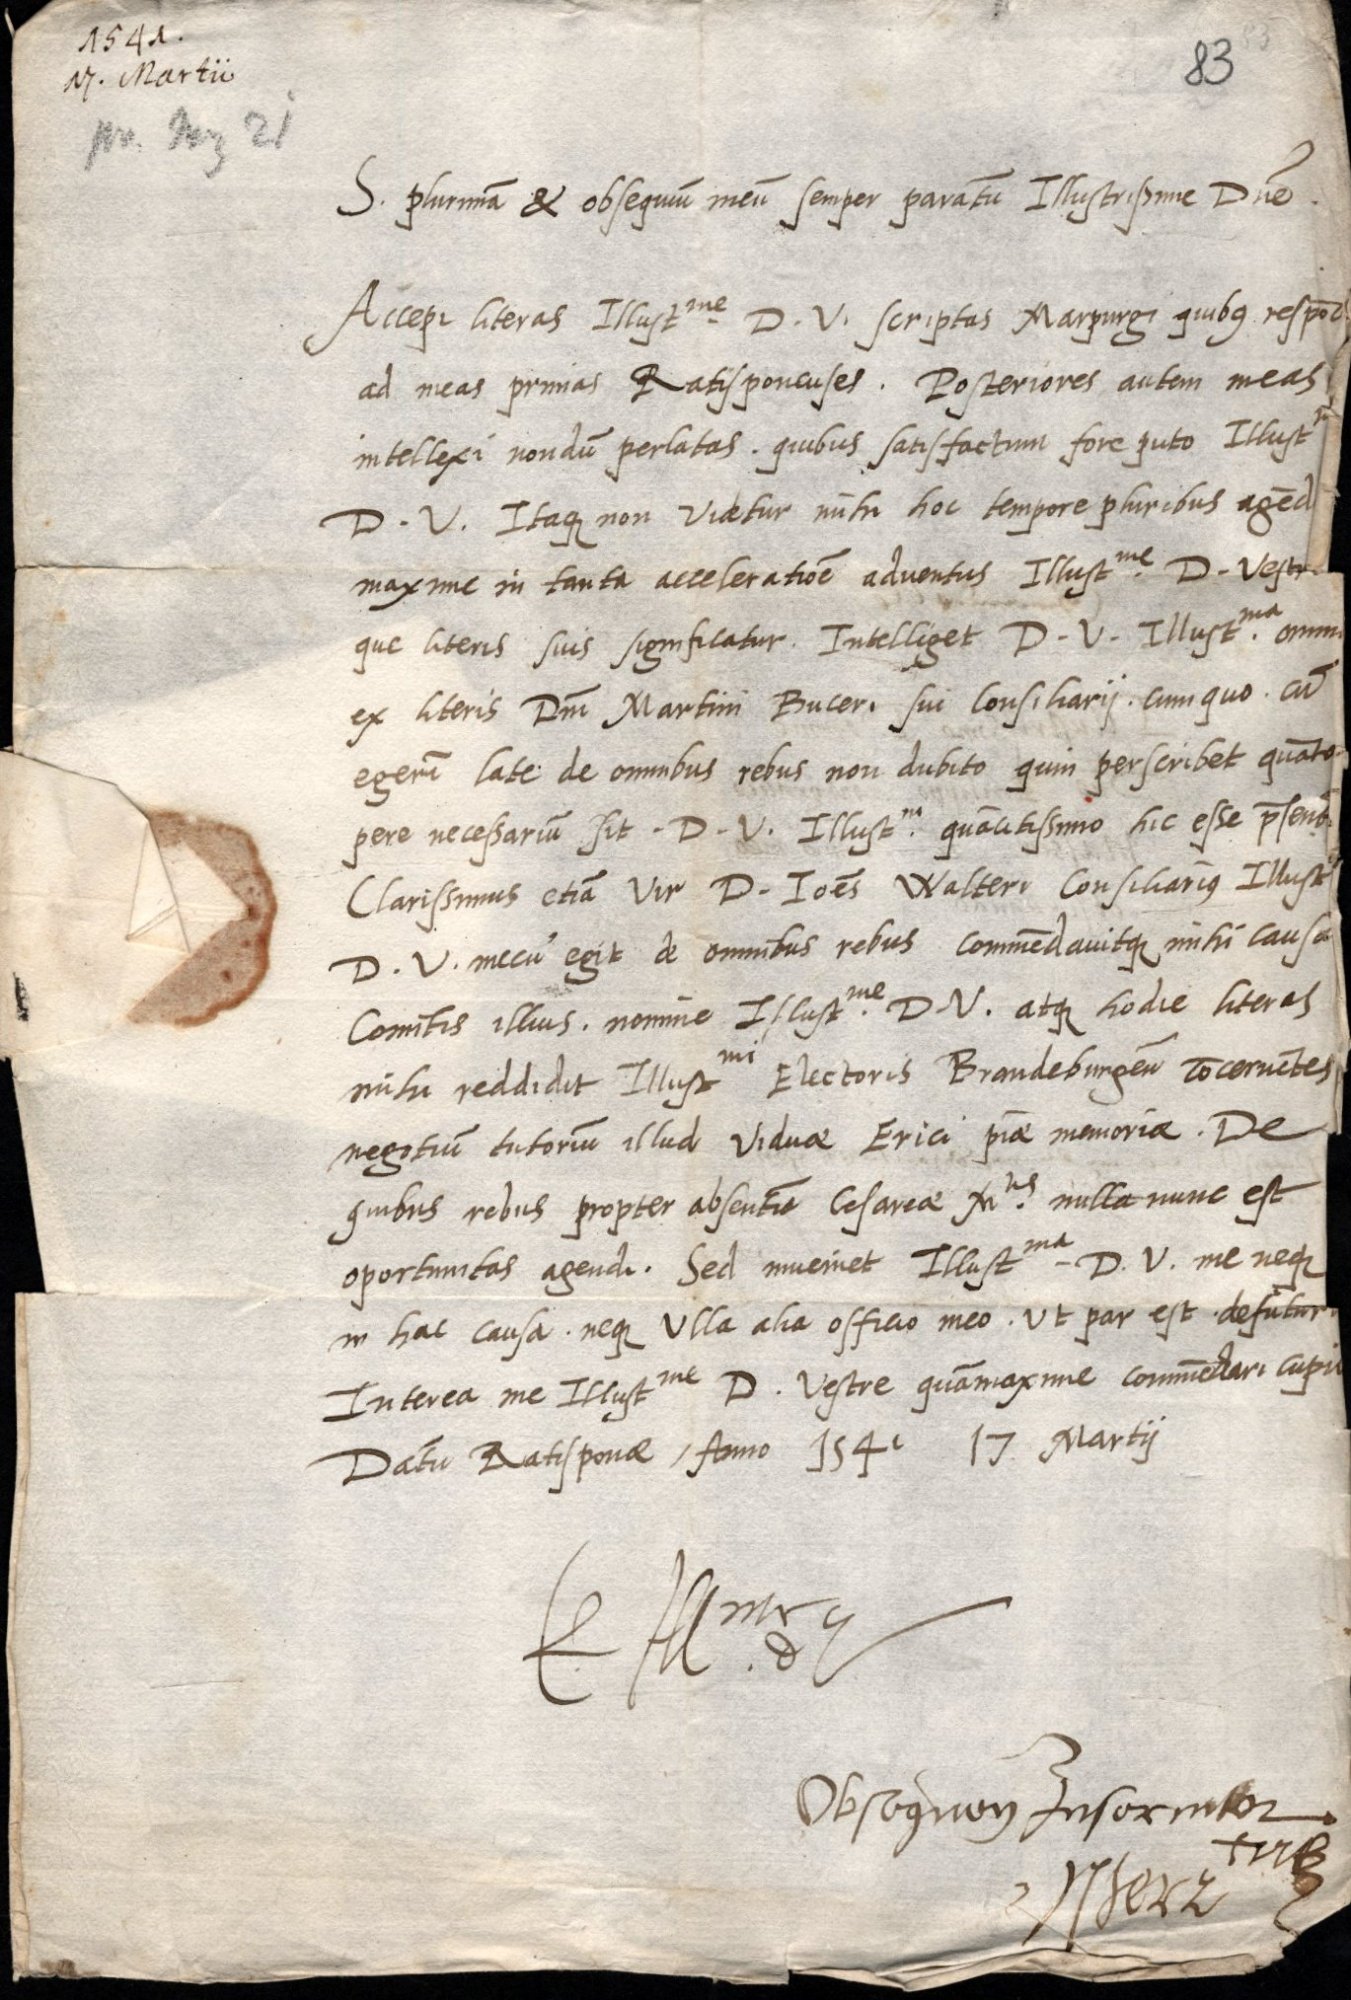 1541.
17. Martii
83
S. plurimā & obsequiū meū semper parātū Illustrissime Dn̄e.
Accepi literas Illust^me D. V. scriptas Marpurgi quibꝰ respōd
ad meas primas Ratisponenses. Posteriores autem meas
intellexi nondū perlatas. quibus satisfactum fore puto Illust
D. V. Itaqꝫ non videtur mihi hoc tempore pluribus agēd
maxime in tanta acceleratiōe adventus Illust^me. D. Vestr
que literis suis significatur. Intelliget D. V. Illust^ma. omni
ex literis Dm̄ Martini Buceri sui Consiliarij. cum quo. cū
egerī late de omnibus rebus non dubito quin perscribet quāto
pere necessariū sit. D. V. Illust^m. quācitissimo hic esse p̄sent
Clarissimus etiā vir D. Ioēs Walteri Consiliariꝰ Illust
D. V. mecū egit de omnibus rebus commēdavitqꝫ mihi causā
Comitis illius. nomine Illust^me. D. V. atqꝫ hodie literas
mihi reddidit Illust^mi Electoris Brandeburgeñ cōcernētes
negotiū tutoriū illud viduæ Erici piæ memoriæ. De
quibus rebus propter absentiā Cesareæ M^tis. nulla nunc est
oportunitas agendi. Sed inveniet Illust^ma. D. V. me neqꝫ
in hac causa. neqꝫ ulla alia officio meo. ut par est. defuturū
Interea me Illust^me D. Vestre quāmaxime commēdari cupio
Datū Ratisponæ, Anno 1541 17 Martij
E. Ill^mæ
D